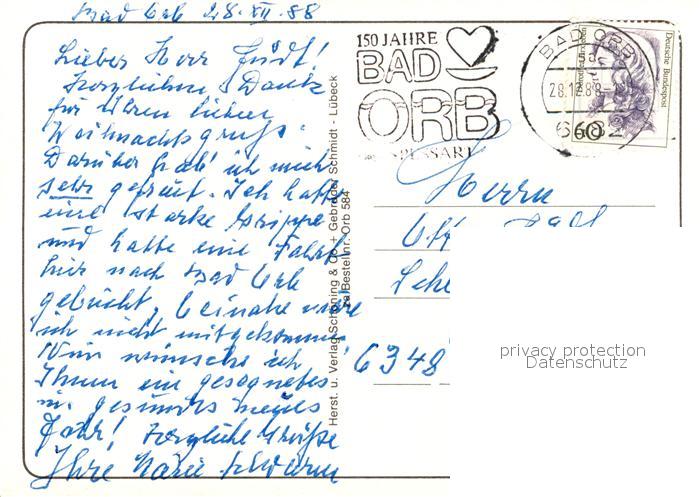 Bad Orb 28. XII. 88
Lieber Herr
Herzlichen Dank
für Ihren lieben
Weihnachtsgruß.
Darüber hab' ich mich
sehr gefreut. Ich hatte
eine starke Grippe
und hatte eine Fahrt
hier nach Bad Orb
gebucht, beinahe wäre
ich nicht mitgekommen.
Nun wünsche ich
Ihnen ein gesegnetes
u. gesundes neues
Jahr! Herzliche Grüße
Ihre Marie
Herst. u. Verlag Schöning & Co + Gebrüder Schmidt · Lübeck
Bestellnr. Orb 584
150 JAHRE
BAD
ORB
SPESSART
BAD ORB
Deutsche Bundespost
60
Herrn
6348
privacy protection
Datenschutz